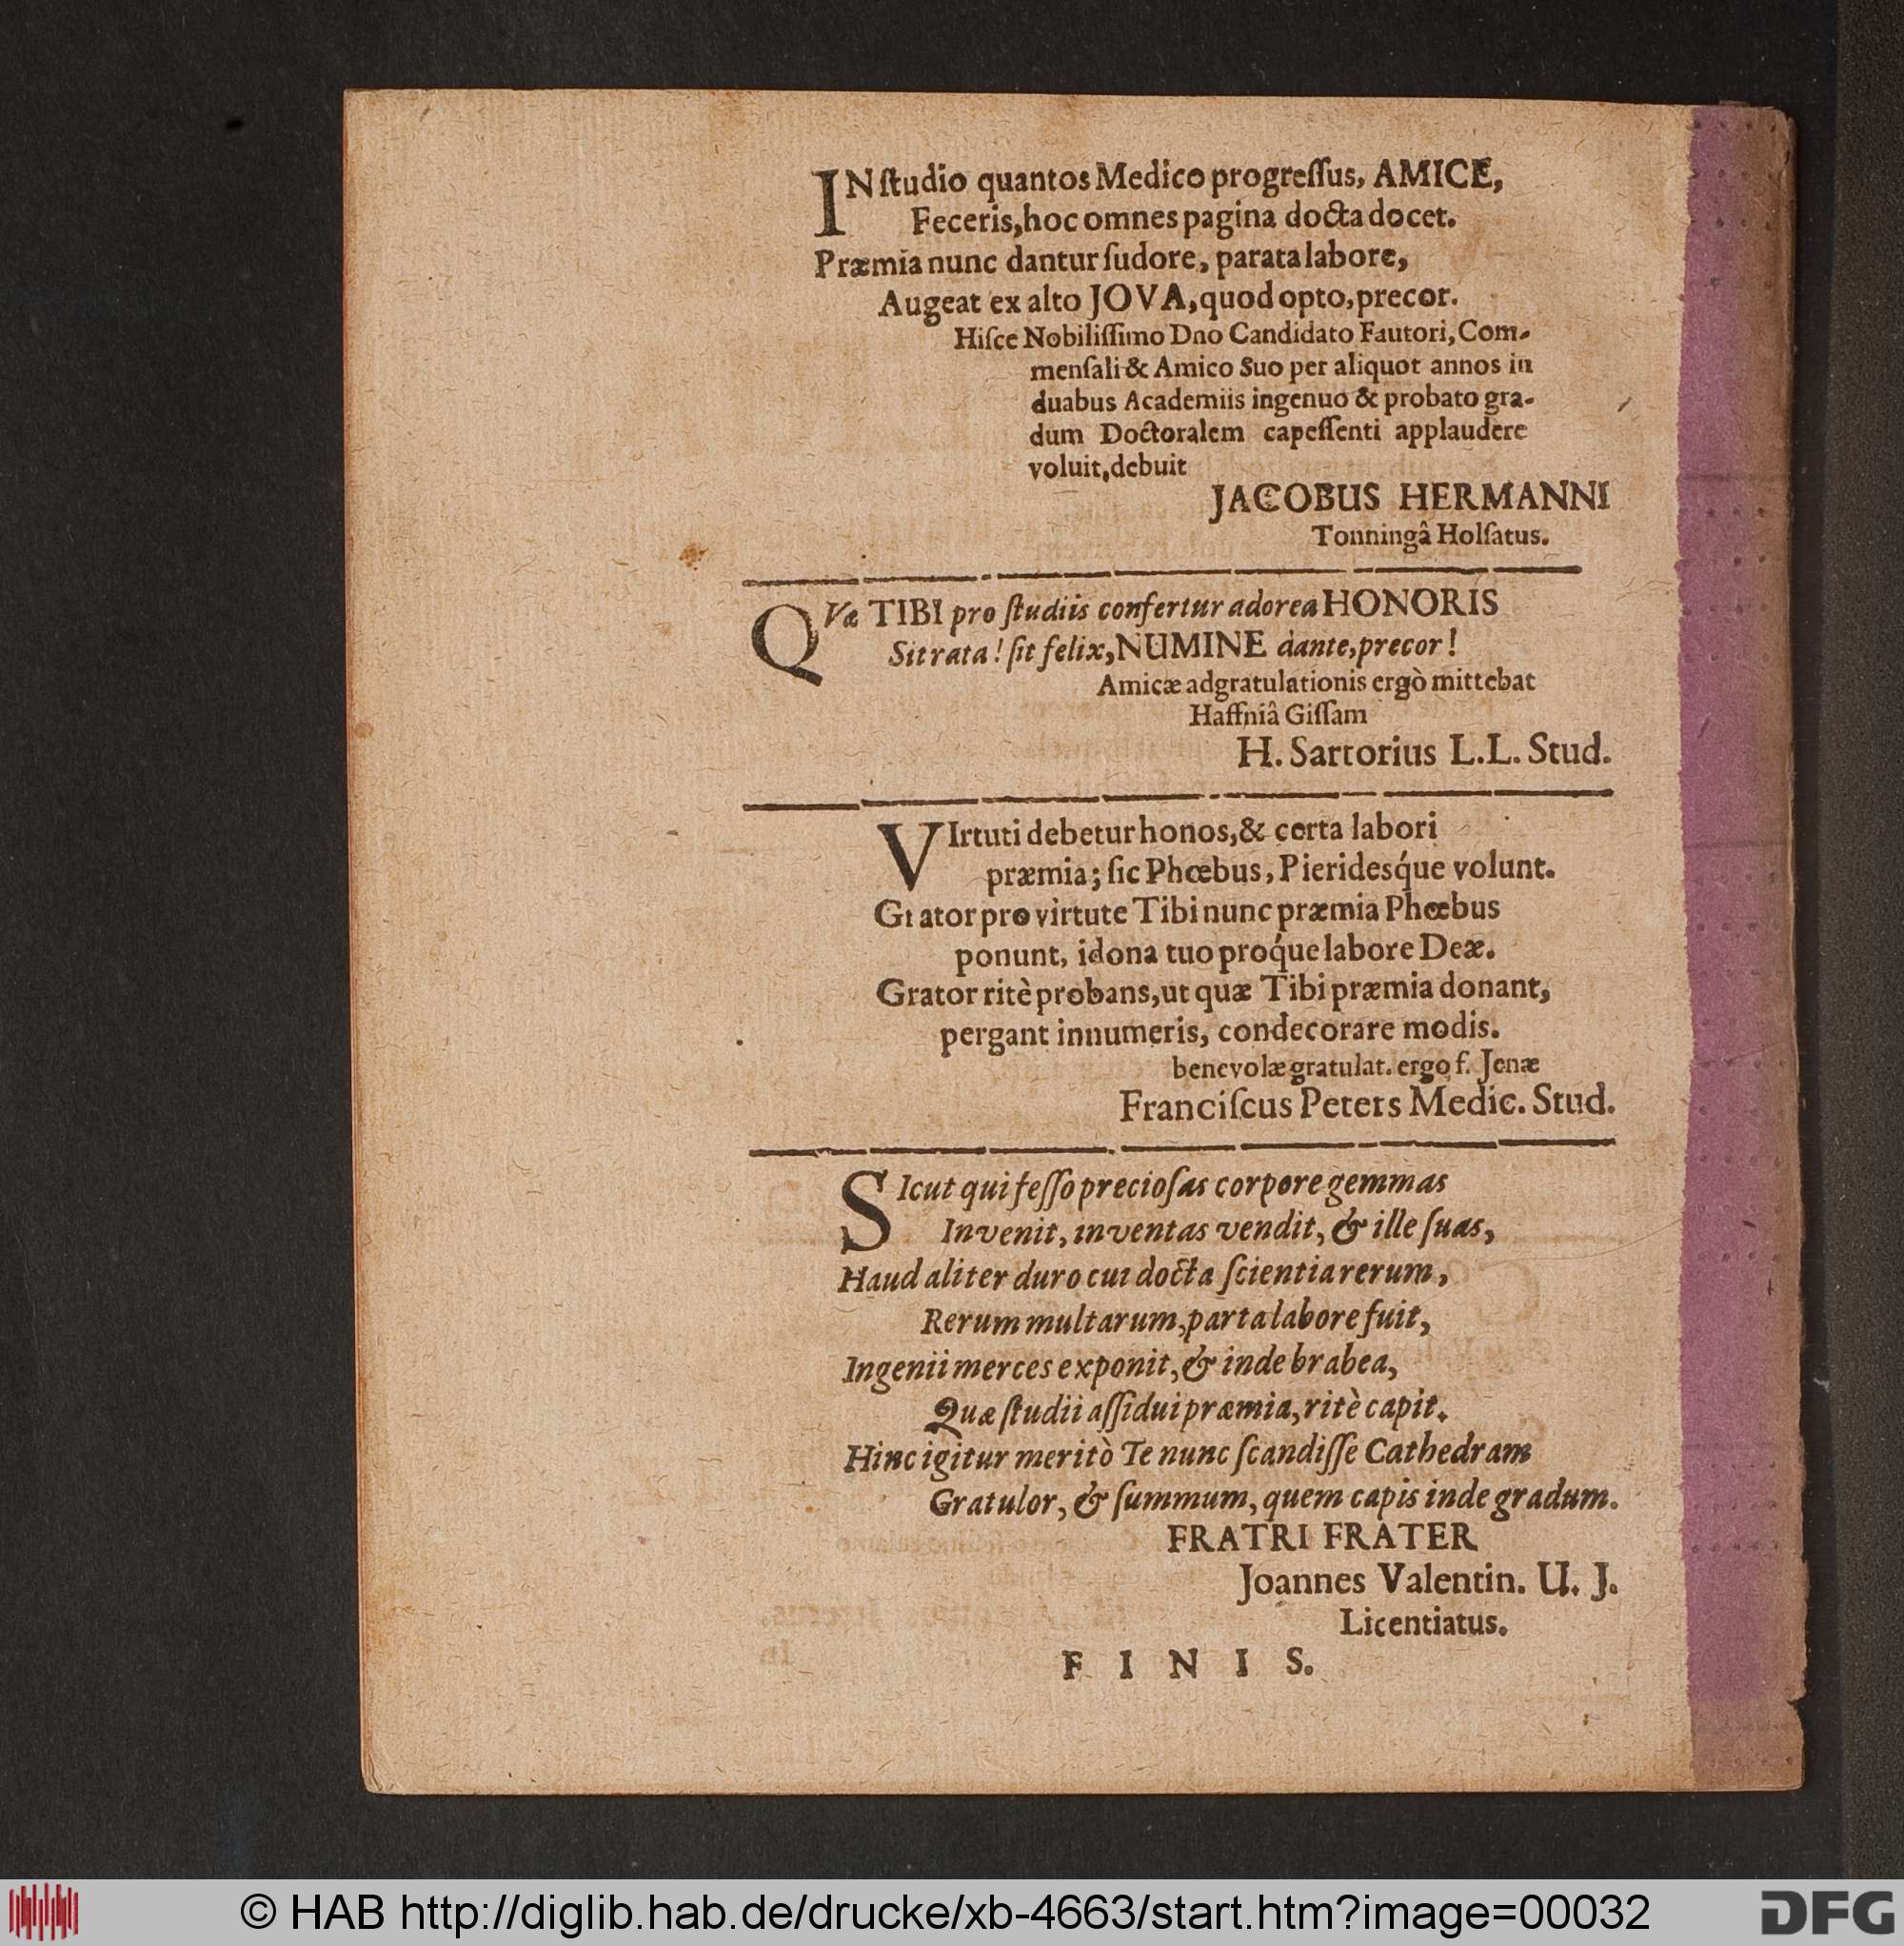 INſtudio quantos Medico progreſſus, AMICE,
Feceris, hoc omnes pagina docta docet.
Præmia nunc dantur ſudore, parata labore,
Augeat ex alto JOVA, quod opto, precor.
Hiſce Nobiliſſimo Dno Candidato Fautori, Com-
menſali & Amico Suo per aliquot annos in
duabus Academiis ingenuo & probato gra-
dum Doctoralem capeſſenti applaudere
voluit, debuit
JACOBUS HERMANNI
Tonningâ Holſatus.
QVæ TIBI pro ſtudiis confertur adorea HONORIS
Sit rata! ſit felix, NUMINE dante, precor!
Amicæ adgratulationis ergò mittebat
Haffniâ Giſſam
H. Sartorius L.L. Stud.
VIrtuti debetur honos, & certa labori
præmia; ſic Phœbus, Pieridesq́ue volunt.
Grator pro virtute Tibi nunc præmia Phœbus
ponunt, idona tuo proq́ue labore Deæ.
Grator ritè probans, ut quæ Tibi præmia donant,
pergant innumeris, condecorare modis.
benevolæ gratulat. ergo f. Jenæ
Franciſcus Peters Medic. Stud.
SIcut qui feſſo precioſas corpore gemmas
Invenit, inventas vendit, & ille ſuas,
Haud aliter duro cui docta ſcientia rerum,
Rerum multarum, parta labore fuit,
Ingenii merces exponit, & inde brabea,
Quæ ſtudii aſſidui præmia, ritè capit.
Hinc igitur meritò Te nunc ſcandiſſe Cathedram
Gratulor, & ſummum, quem capis inde gradum.
FRATRI FRATER
Joannes Valentin. U. J.
Licentiatus.
F I N I S.
© HAB http://diglib.hab.de/drucke/xb-4663/start.htm?image=00032
DFG